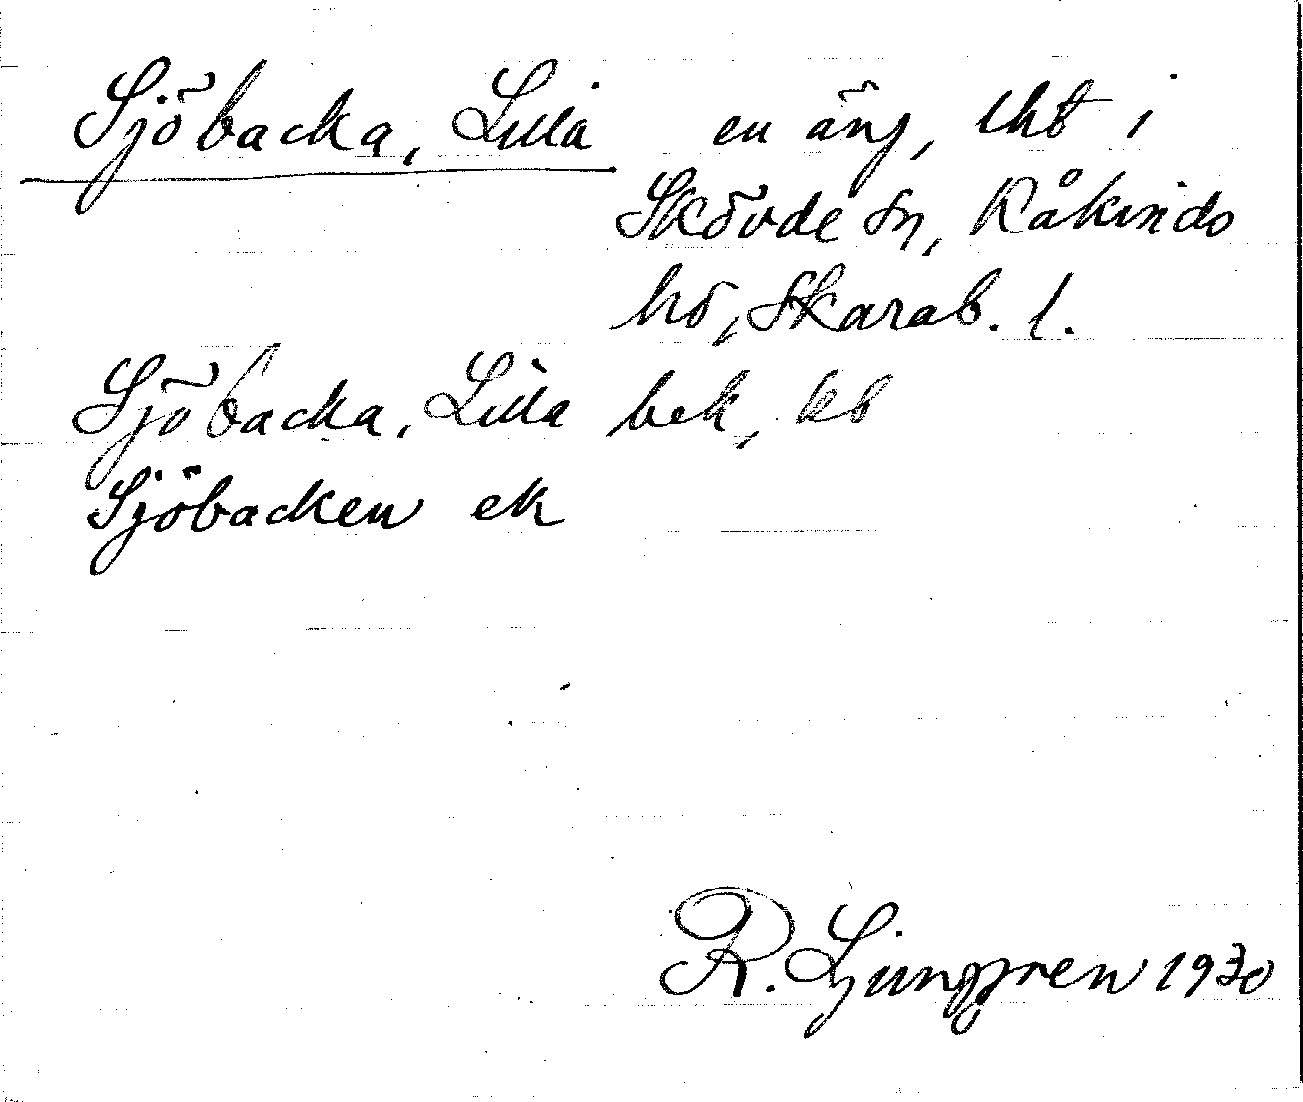 Sjöbacka, Lilla en äng, lht i
Skövde sn, Kåkinds
hd, Skarab. l.
Sjöbacka, Lilla bek, kb
Sjöbacken ek
R. Ljunggren 1930